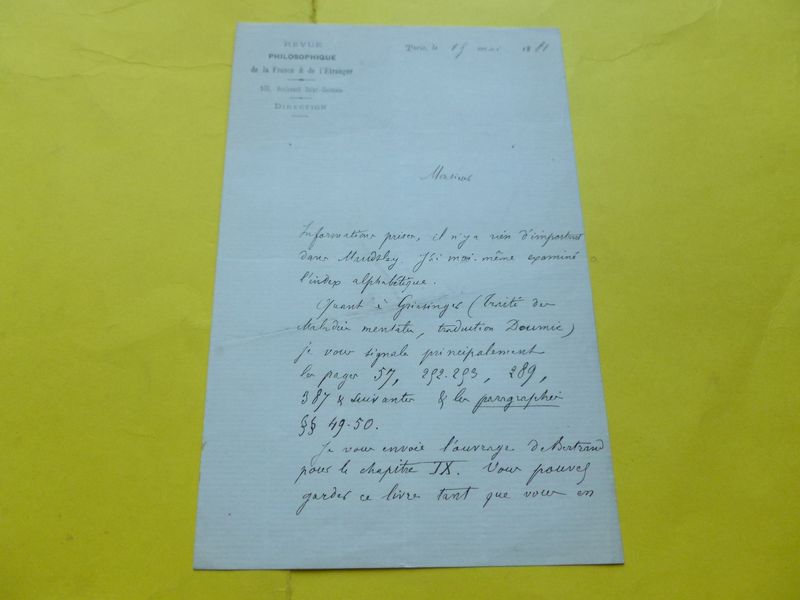 REVUE
PHILOSOPHIQUE
de la France & de l'Etranger
108, Boulevard Saint-Germain
DIRECTION
Paris, le 15 mai 1881
Monsieur
Informations prises, il n'y a rien d'important
dans Maudsley. J'ai moi-même examiné
l'index alphabétique.
Quant à Griesinger (Traité des
Maladies mentales, traduction Doumic)
je vous signale principalement
les pages 57, 292-293, 289,
387 & suivantes & les paragraphes
§§ 49-50.
Je vous envoie l'ouvrage de Bertrand
pour le chapitre IX. Vous pouvez
garder ce livre tant que vous en